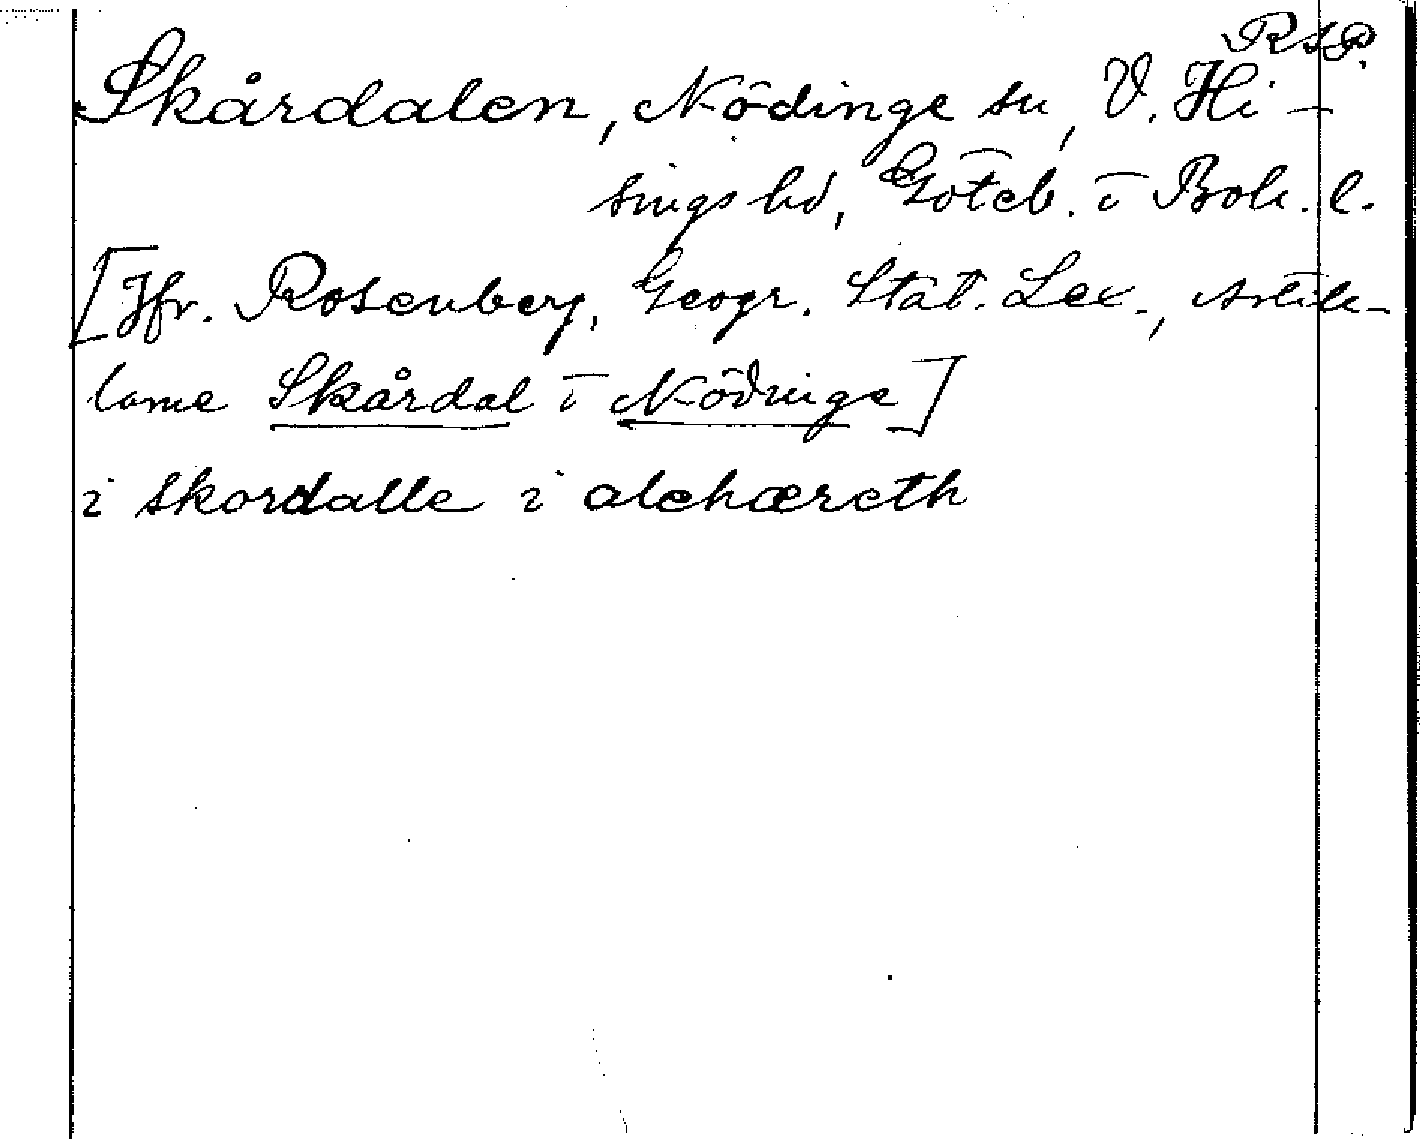 RSP.
Skårdalen, Nödinge sn, V. Hi-
sings hd, Göteb. i Boh. l.
[Jfr. Rosenberg, Geogr. Stat. Lex., Artik-
larne Skårdal i Nödinge]
i skordalle i alehæreth